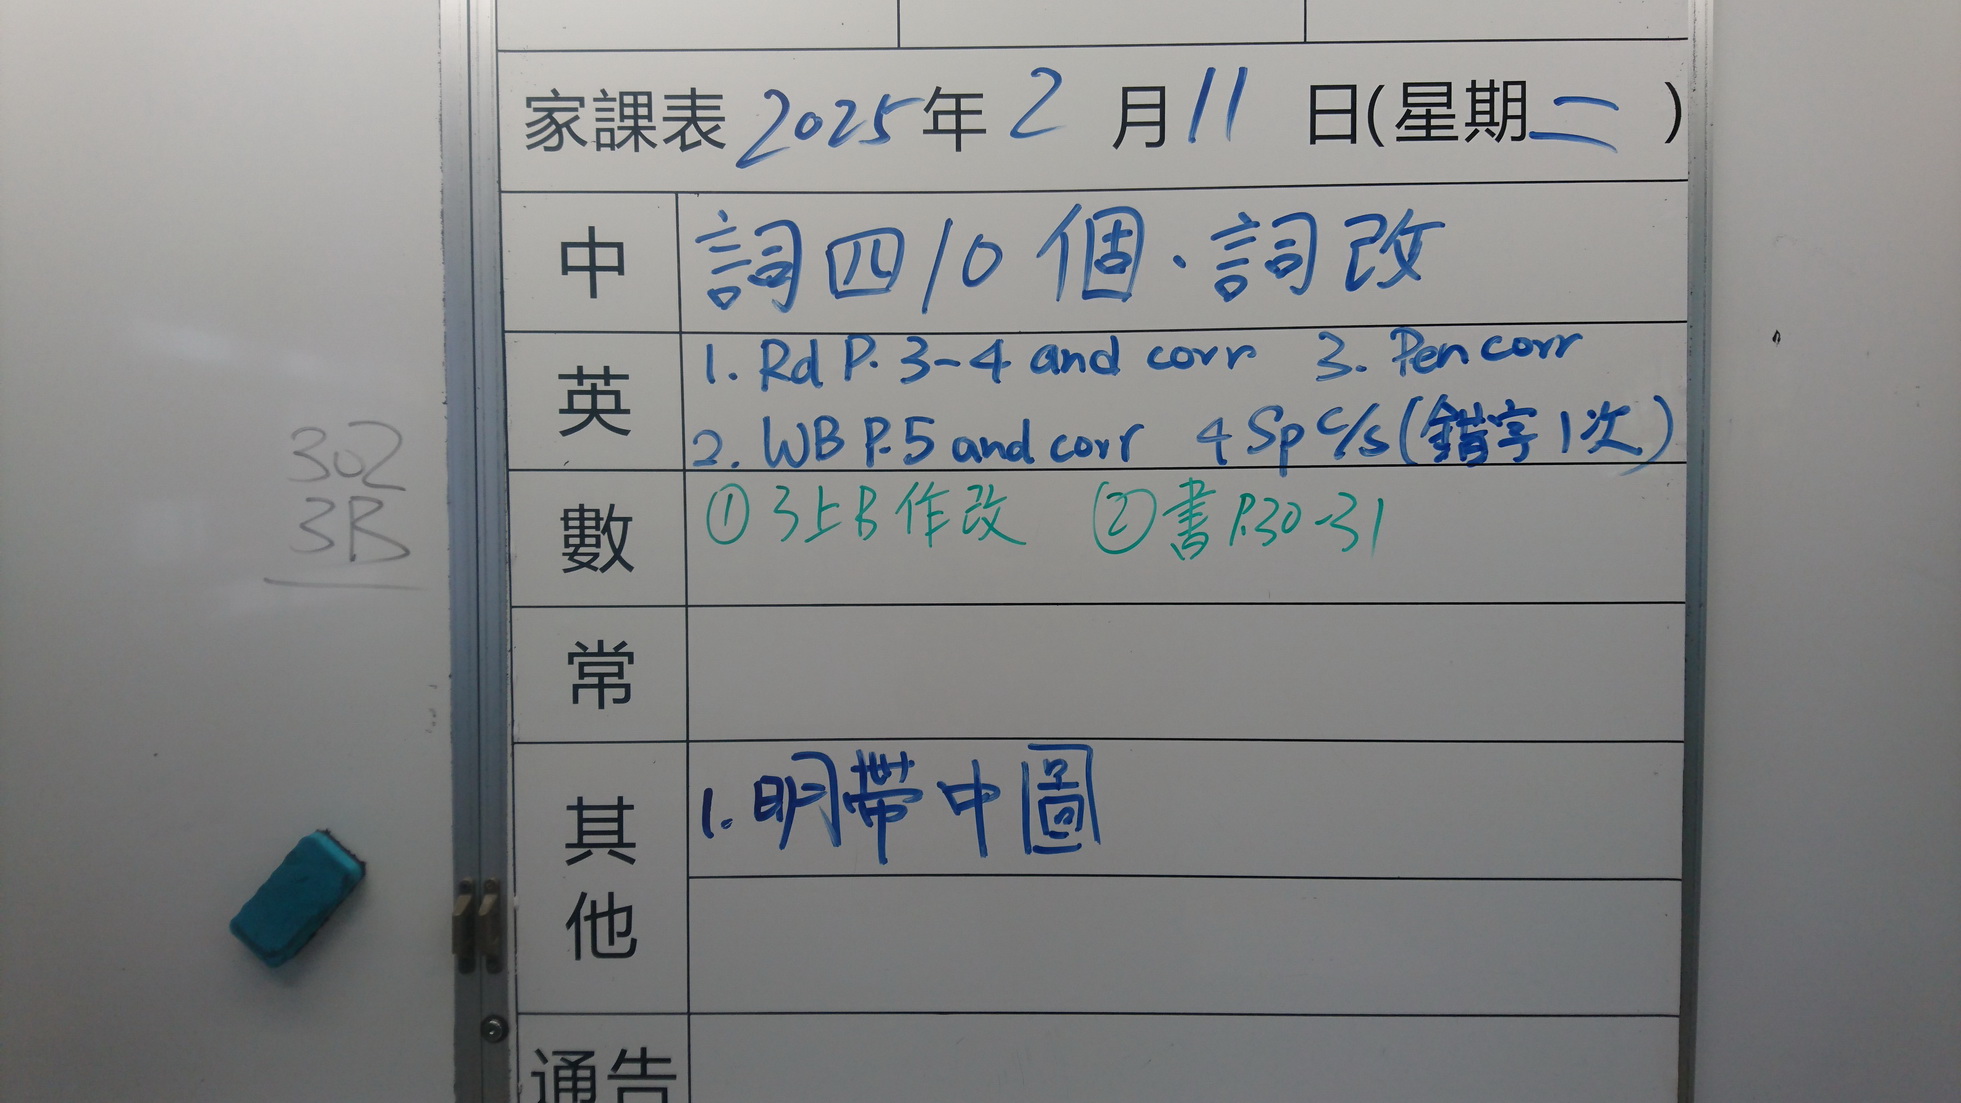 家課表 2025年 2 月 11 日(星期二)
中 詞四10個．詞改
英 1. Rd P. 3-4 and corr 3. Pen corr
2. WB P.5 and corr 4 Sp c/s (錯字1次)
數 ①3上B作改 ②書P.30-31
常
其他 1. 明帶中圖
通告
302
3B